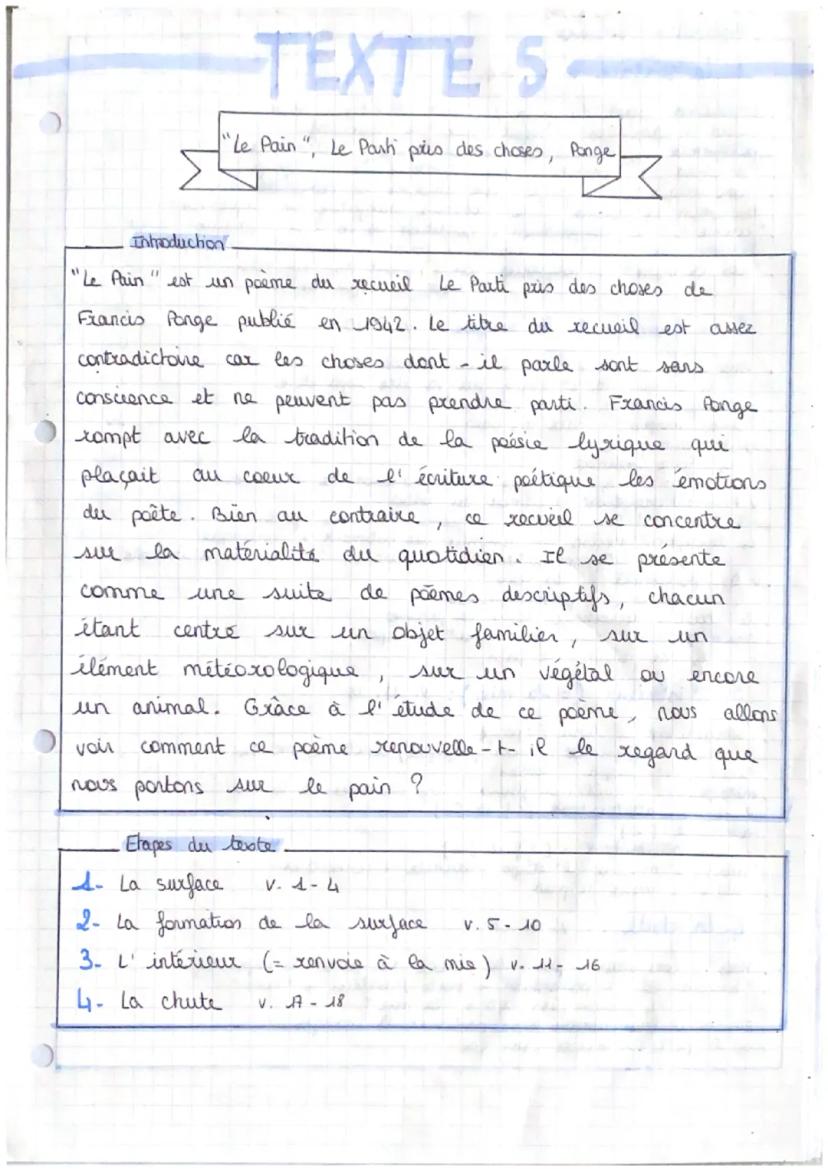 TEXTE 5
"Le Pain", Le Parti pris des choses, Ponge
Introduction
"Le Pain" est un poème du recueil Le Parti pris des choses de
Francis Ponge publié en 1942. Le titre du recueil est assez
contradictoire car les choses dont - il parle sont sans
conscience et ne peuvent pas prendre parti. Francis Ponge
rompt avec la tradition de la poésie lyrique qui
plaçait au coeur de l'écriture poétique les émotions
du poète. Bien au contraire, ce recueil se concentre
sur la matérialité du quotidien. Il se présente
comme une suite de poèmes descriptifs, chacun
étant centré sur un objet familier, sur un
élément météorologique, sur un végétal ou encore
un animal. Grâce à l'étude de ce poème, nous allons
voir comment ce poème renouvelle-t-il le regard que
nous portons sur le pain ?
Etapes du texte
1- La surface v. 1-4
2- La formation de la surface v. 5-10
3- L'intérieur (= renvoie à la mie) v. 11-16
4- La chute v. 17-18